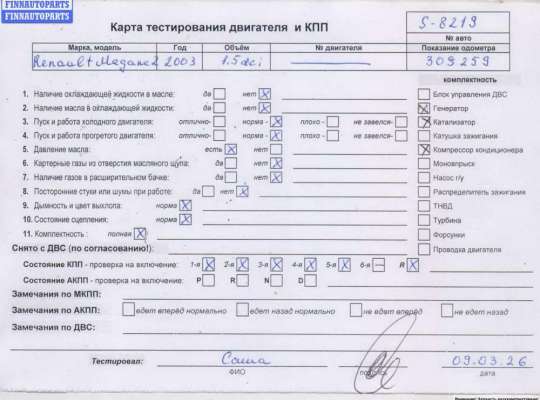 FINNAUTOPARTS
FINNAUTOPARTS
Карта тестирования двигателя и КПП
S-8219
№ авто
Марка, модель Год Объём № двигателя Показание одометра
Renault Megane 2 2003 1.5 dci 309259
комплектность
1. Наличие охлаждающей жидкости в масле: да нет X Блок управления ДВС
2. Наличие масла в охлаждающей жидкости: да нет X Генератор
3. Пуск и работа холодного двигателя: отлично- норма - X плохо - не завелся- X Катализатор
4. Пуск и работа прогретого двигателя: отлично- норма - X плохо - не завелся- Катушка зажигания
5. Давление масла: есть X нет X Компрессор кондиционера
6. Картерные газы из отверстия масляного щупа: да нет X Моновпрыск
7. Наличие газов в расширительном бачке: да нет X Насос г/у
8. Посторонние стуки или шумы при работе: да нет X Распределитель зажигания
9. Дымность и цвет выхлопа: норма X ТНВД
10. Состояние сцепления: норма X Турбина
11. Комплектность : полная X Форсунки
Снято с ДВС (по согласованию!): Проводка двигателя
Состояние КПП - проверка на включение: 1-я X 2-я X 3-я X 4-я X 5-я X 6-я — R X
Состояние АКПП - проверка на включение: P R N D
Замечания по МКПП:
Замечания по АКПП: едет вперёд нормально едет назад нормально не едет вперёд не едет назад
Замечания по ДВС:
Тестировал: Саша 09.03.26
ФИО подпись дата